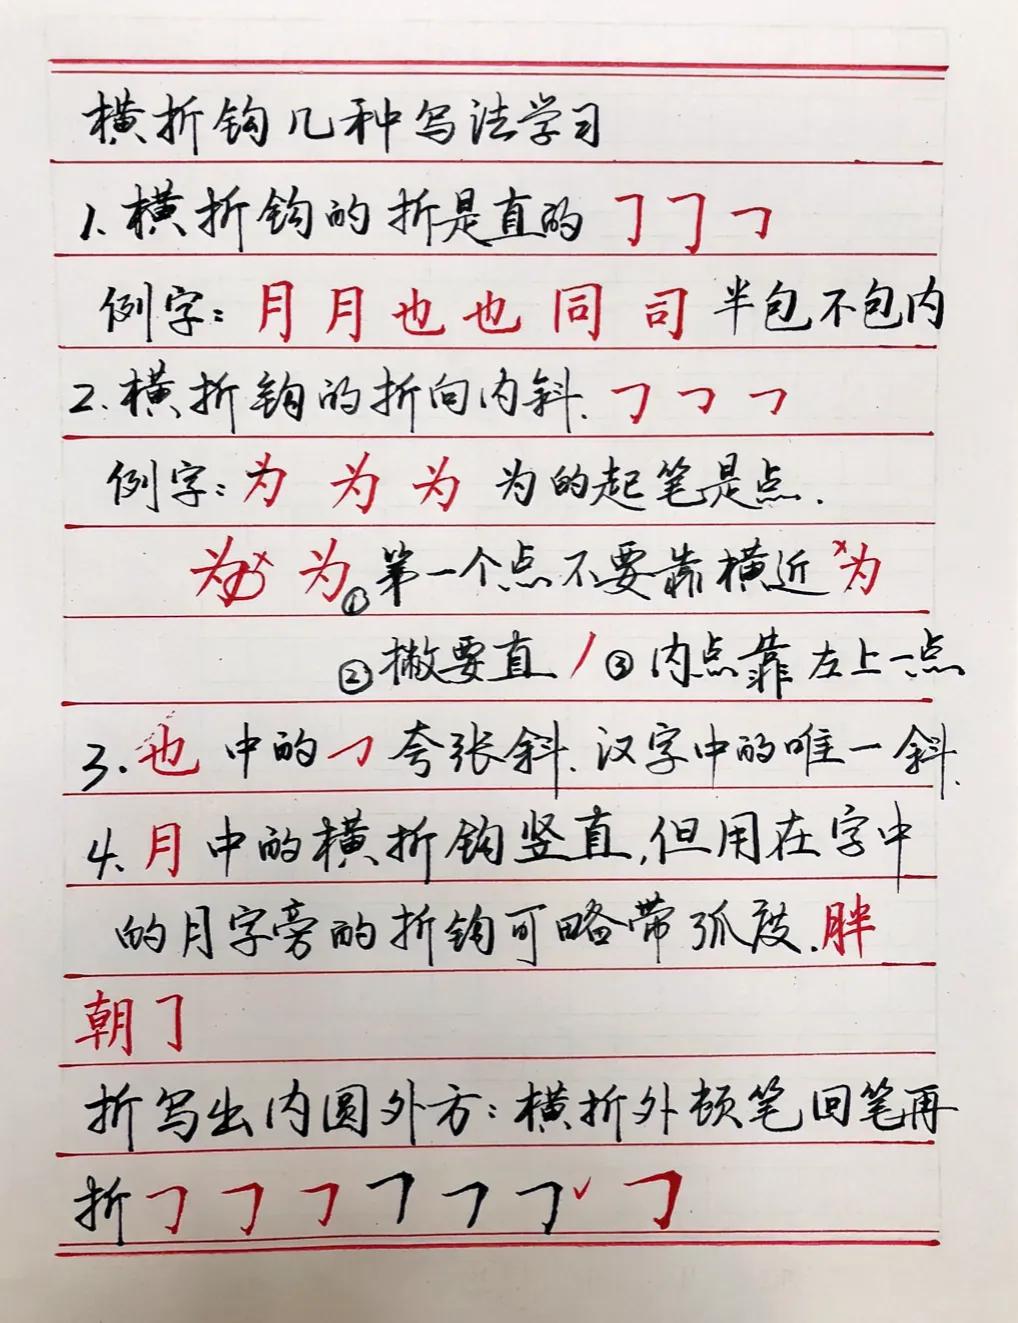 横折钩几种写法学习
1.横折钩的折是直的 ㇆ ㇆ ㇆
例字:月月也也同司半包不包内
2.横折钩的折向内斜.㇆ ㇆ ㇆
例字:为为为 为的起笔是点.
为×为①第一个点不要靠横近×为
②撇要直丿③内点靠左上一点
3.也中的㇆夸张斜.汉字中的唯一斜.
4.月中的横折钩竖直,但用在字中
的月字旁的折钩可略带弧度.胖
朝㇆
折写出内圆外方:横折外顿笔回笔再
折㇆ ㇆ ㇆ ㇆ ㇆ ㇆✓ ㇆